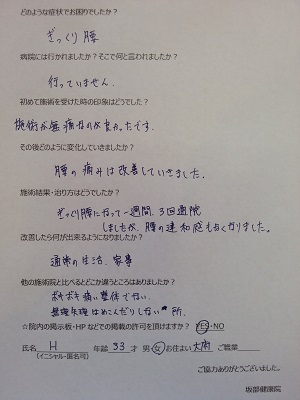 どのような症状でお困りでしたか?
ぎっくり腰
病院には行かれましたか?そこで何と言われましたか?
行っていません。
初めて施術を受けた時の印象はどうでした?
施術が無痛なのが良かったです。
その後どのように変化していきましたか?
腰の痛みは改善していきました。
施術結果・治り方はどうでしたか?
ぎっくり腰になって一週間、3回通院
しましたが、腰の違和感もなくなりました。
改善したら何が出来るようになりましたか?
通常の生活、家事
他の施術院と比べるとどこか違うところはありましたか?
ボキボキ痛い整体でない
無理矢理はめこんだりしない所。
☆院内の掲示板・HPなどでの掲載の許可を頂けますか? YES・NO
氏名 H 年齢 33 才 男・女 お住まい 大府 ご職業
(イニシャル・匿名可)
ご協力ありがとうございました。
坂部健康院